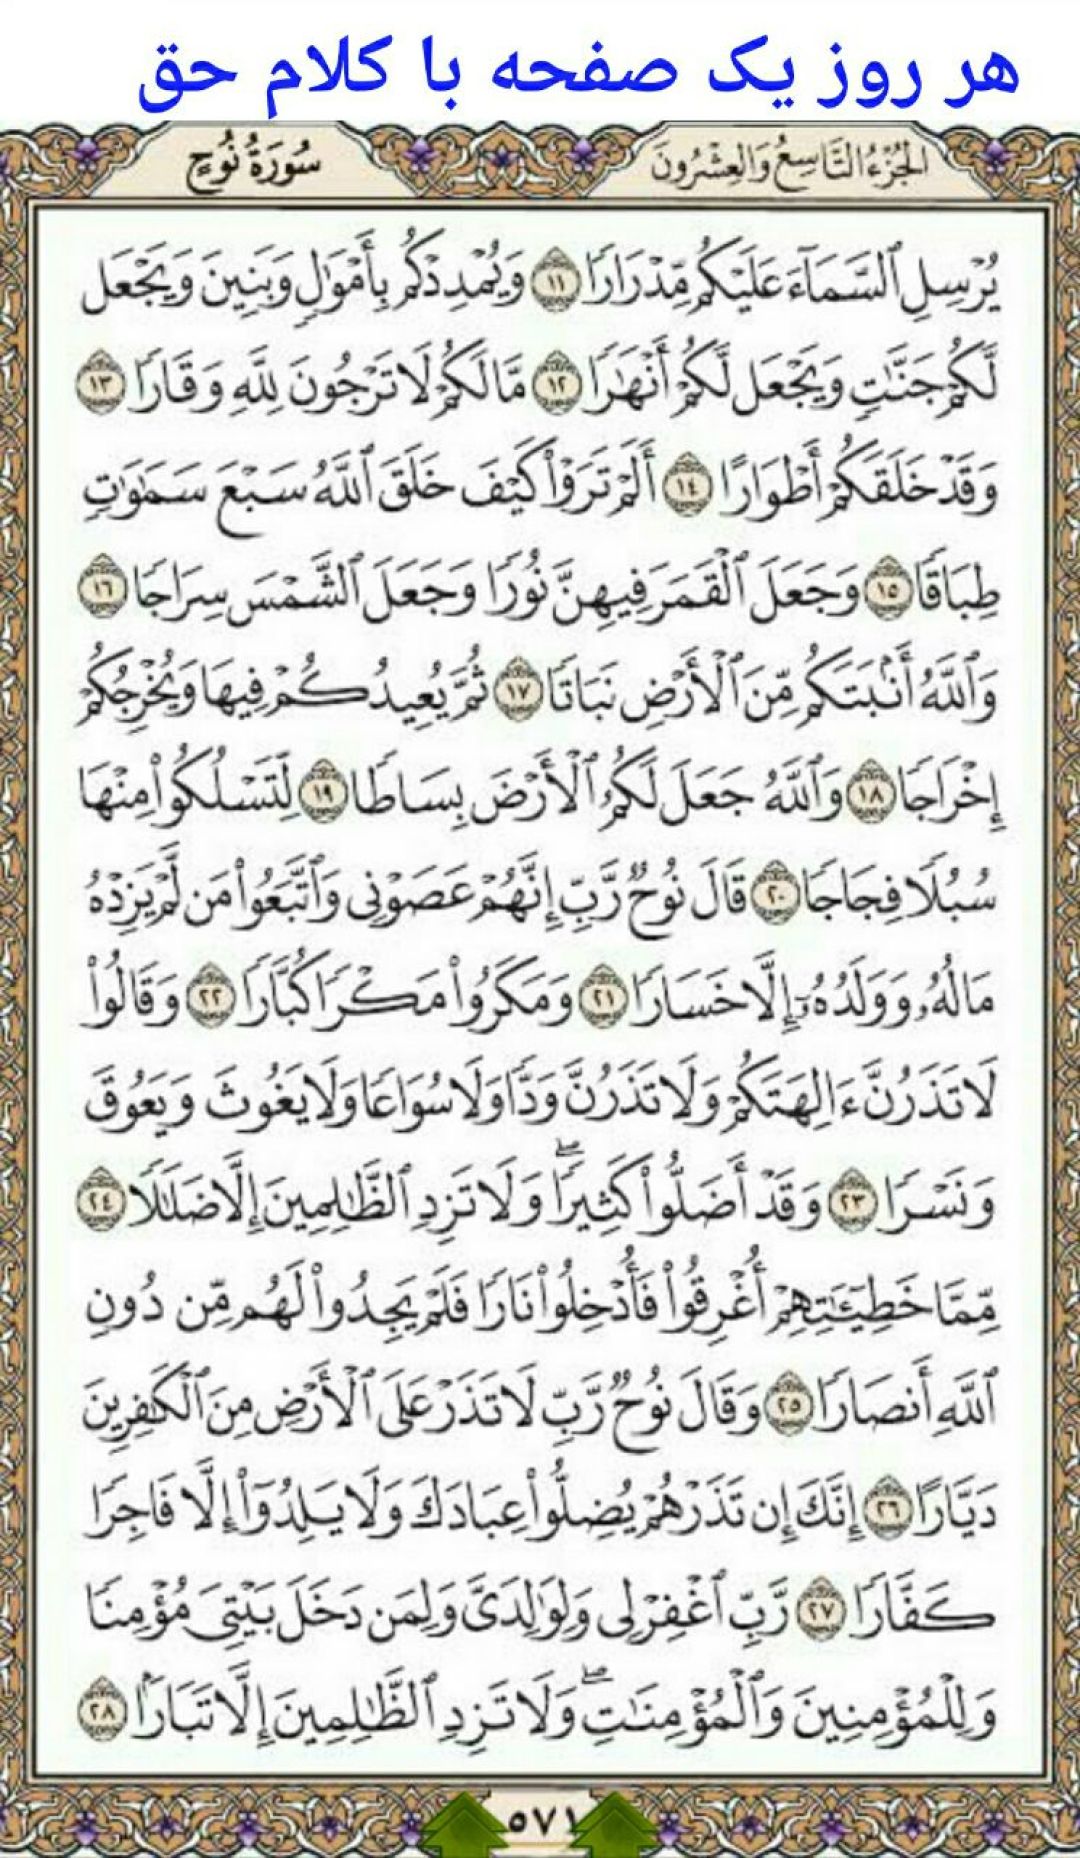 هر روز یک صفحه با کلام حق
الجُزْءُ التَّاسِعُ وَالعِشْرُونَ
سُورَةُ نُوحٍ
يُرْسِلِ ٱلسَّمَآءَ عَلَيْكُم مِّدْرَارًا ١١ وَيُمْدِدْكُم بِأَمْوَٰلٍ وَبَنِينَ وَيَجْعَل
لَّكُمْ جَنَّٰتٍ وَيَجْعَل لَّكُمْ أَنْهَٰرًا ١٢ مَّا لَكُمْ لَا تَرْجُونَ لِلَّهِ وَقَارًا ١٣
وَقَدْ خَلَقَكُمْ أَطْوَارًا ١٤ أَلَمْ تَرَوْا۟ كَيْفَ خَلَقَ ٱللَّهُ سَبْعَ سَمَٰوَٰتٍ
طِبَاقًا ١٥ وَجَعَلَ ٱلْقَمَرَ فِيهِنَّ نُورًا وَجَعَلَ ٱلشَّمْسَ سِرَاجًا ١٦
وَٱللَّهُ أَنۢبَتَكُم مِّنَ ٱلْأَرْضِ نَبَاتًا ١٧ ثُمَّ يُعِيدُكُمْ فِيهَا وَيُخْرِجُكُمْ
إِخْرَاجًا ١٨ وَٱللَّهُ جَعَلَ لَكُمُ ٱلْأَرْضَ بِسَاطًا ١٩ لِّتَسْلُكُوا۟ مِنْهَا
سُبُلًا فِجَاجًا ٢٠ قَالَ نُوحٌ رَّبِّ إِنَّهُمْ عَصَوْنِى وَٱتَّبَعُوا۟ مَن لَّمْ يَزِدْهُ
مَالُهُۥ وَوَلَدُهُۥٓ إِلَّا خَسَارًا ٢١ وَمَكَرُوا۟ مَكْرًا كُبَّارًا ٢٢ وَقَالُوا۟
لَا تَذَرُنَّ ءَالِهَتَكُمْ وَلَا تَذَرُنَّ وَدًّا وَلَا سُوَاعًا وَلَا يَغُوثَ وَيَعُوقَ
وَنَسْرًا ٢٣ وَقَدْ أَضَلُّوا۟ كَثِيرًا ۖ وَلَا تَزِدِ ٱلظَّٰلِمِينَ إِلَّا ضَلَٰلًا ٢٤
مِّمَّا خَطِيٓـَٰٔتِهِمْ أُغْرِقُوا۟ فَأُدْخِلُوا۟ نَارًا فَلَمْ يَجِدُوا۟ لَهُم مِّن دُونِ
ٱللَّهِ أَنصَارًا ٢٥ وَقَالَ نُوحٌ رَّبِّ لَا تَذَرْ عَلَى ٱلْأَرْضِ مِنَ ٱلْكَٰفِرِينَ
دَيَّارًا ٢٦ إِنَّكَ إِن تَذَرْهُمْ يُضِلُّوا۟ عِبَادَكَ وَلَا يَلِدُوٓا۟ إِلَّا فَاجِرًا
كَفَّارًا ٢٧ رَّبِّ ٱغْفِرْ لِى وَلِوَٰلِدَىَّ وَلِمَن دَخَلَ بَيْتِىَ مُؤْمِنًا
وَلِلْمُؤْمِنِينَ وَٱلْمُؤْمِنَٰتِ ۖ وَلَا تَزِدِ ٱلظَّٰلِمِينَ إِلَّا تَبَارًۢا ٢٨
٥٧١